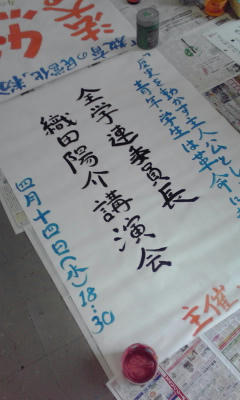 史を動かす主人公とし
青年・学生は革命に
全学連委員長
織田陽介講演会
四月十四日(水)18:30
主催
教育の民営化粉
法大